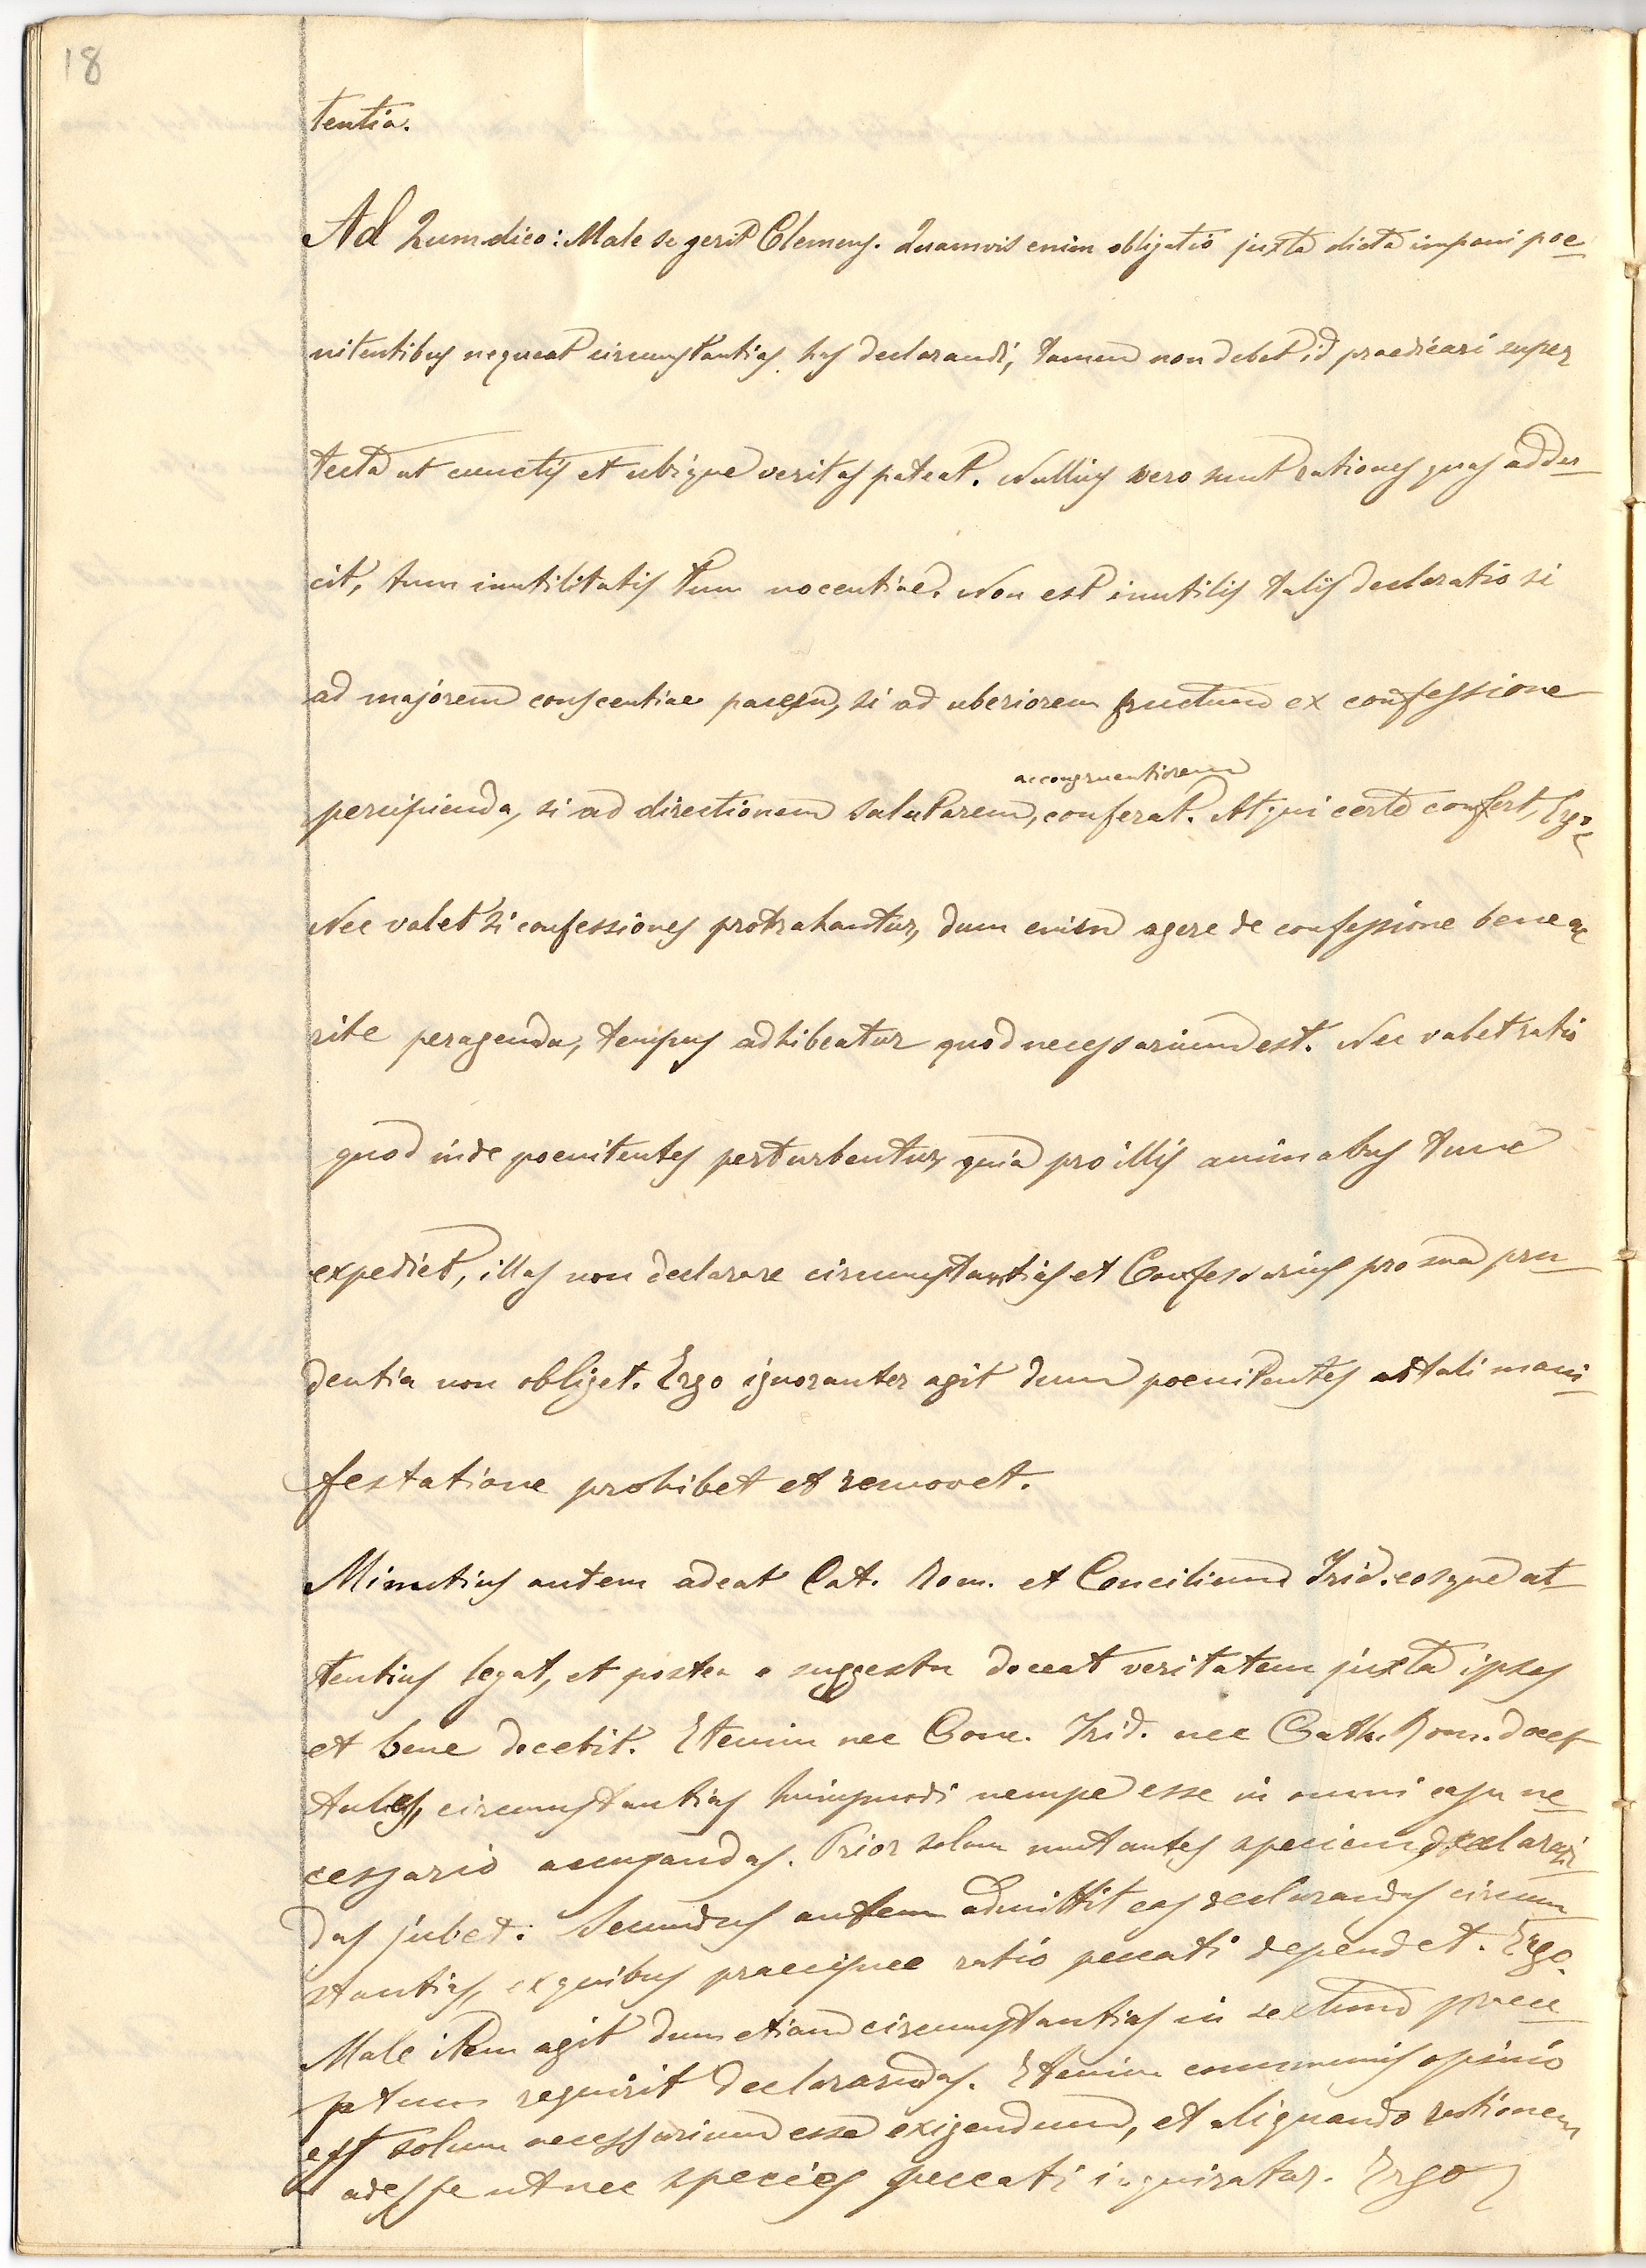 18
tentia.
Ad 2um dico: Male se gerit Clemens. Quamvis enim obligatio juxta dicta imponi poe
nitentibus nequeat circumstantias has declarandi, tamen non debet id praedicari super
tecta ut cunctis et ubique veritas pateat. Nullius vero sunt rationes quas addu
cit, tum inutilitatis tum nocentiae. Non est inutilis talis declaratio si
ad majorem conscentiae pacem, si ad uberiorem fructum ex confessione
accongruentiorem
percipienda, si ad directionem salutarem, conferat. Atqui certe confert, Ergo
Nec valet si confessiones protrahantur, dum enim agere de confessione bene ac
rite peragenda, tempus adhibeatur quod necessarium est. Nec valet ratio
quod inde poenitentes perturbentur, quia pro illis animabus tunc
expediet, illas non declarare circumstantias et Confessarius pro sua pru
dentia non obliget. Ergo ignoranter agit dum poenitentes a tali mani
festatione prohibet et removet.
Minutius autem adeat Cat. Rom. et Concilium Trid. eosque at
tentius legat, et postea e suggestu doceat veritatem juxta ipsos
et bene docebit. Etenim nec Conc. Trid. nec Cath. Rom. docet
tales, circumstantias hujusmodi nempe esse in omni casu ne
cessario accusandas. Prior solum mutantes speciem declaran
das jubet. Secundus autem admittit eas declarandas circum
stantias, ex quibus praecipue ratio peccati dependet. Ergo.
Male item agit dum etiam circumstantias in sextum praece
ptum requirit declarandas. Etenim communis opinio
est solum necessarium esse exigendum, et aliquando rationem
adesse ut nec species peccati inquiratur. Ergo